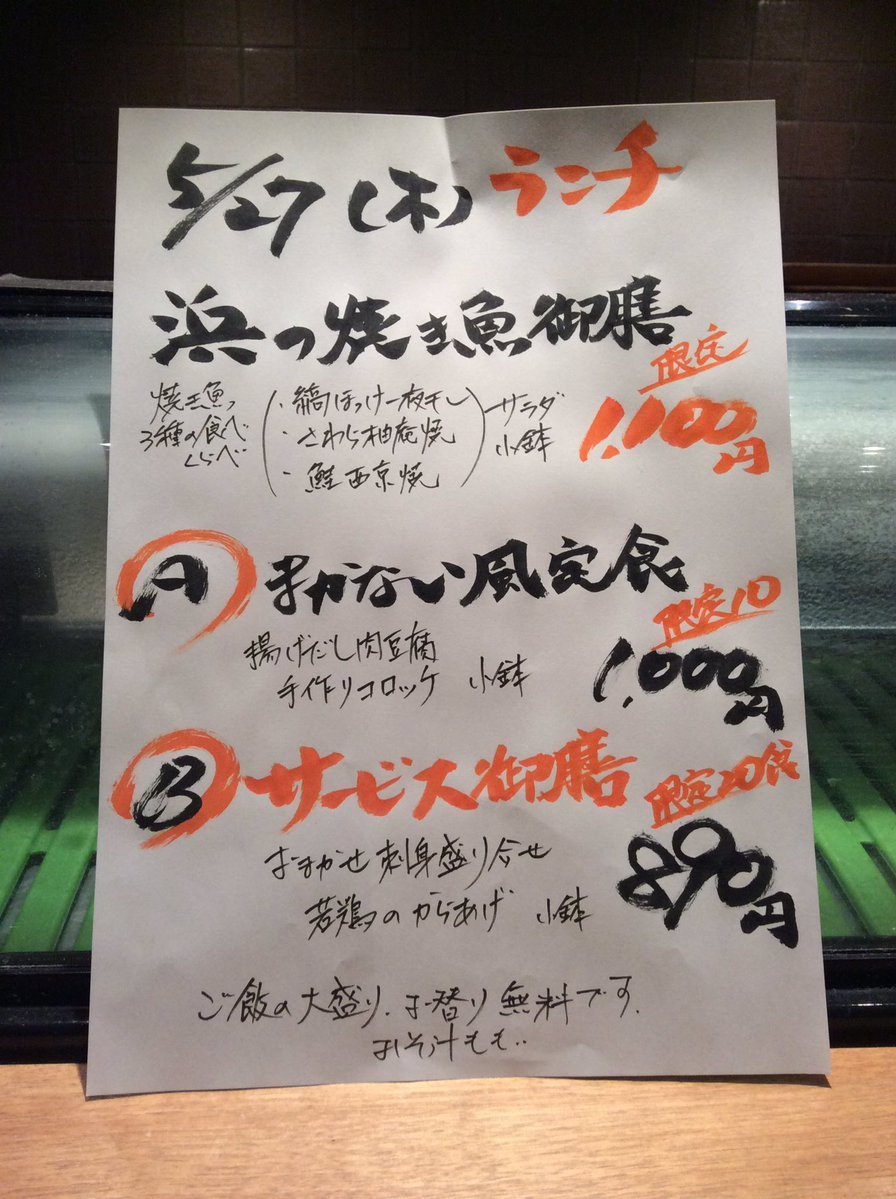 5/27(木)ランチ
浜の焼き魚御膳
限定
1,100円
焼き魚の
3種の食べ
くらべ
・縞ほっけ一夜干し
・さわら柚庵焼
・鮭西京焼
サラダ
小鉢
A まかない風定食
限定10
1,000円
揚げだし肉豆腐
手作りコロッケ 小鉢
B サービス御膳
限定20食
890円
おまかせ刺身盛り合せ
若鶏のからあげ 小鉢
ご飯の大盛り、お替り無料です。
おみそ汁も‥